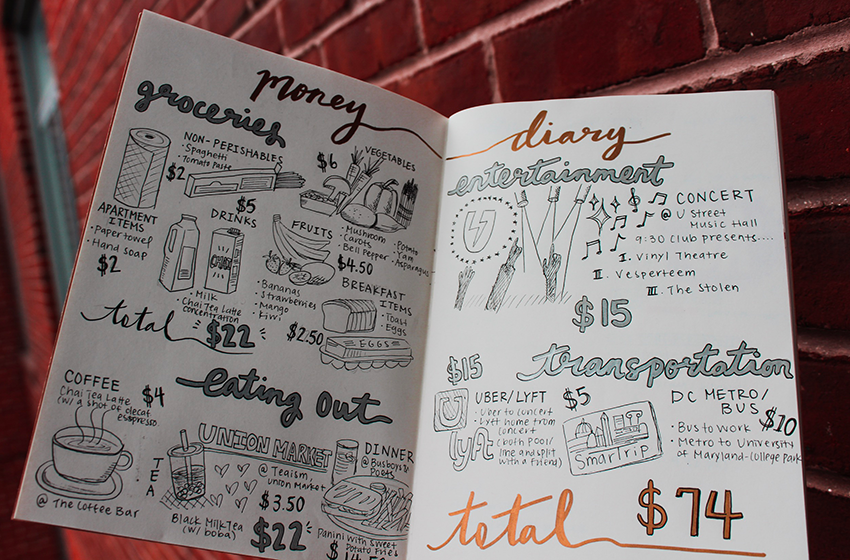 money
groceries
NON-PERISHABLES
• Spaghetti
• Tomato Paste
$2
$6
VEGETABLES
• Mushroom
• Carots
• Bell Pepper
• Potato
• Yam
• Asparagus
APARTMENT
ITEMS
• Papertowel
• Hand soap
$2
$5
DRINKS
CHAI
• Milk
• Chai Tea Latte
concentration
FRUITS
• Bananas
• Strawberries
• Mango
• Kiwi
$4.50
BREAKFAST
ITEMS
• Toast
• Eggs
$2.50
EGGS
total
$22
eating out
COFFEE
Chai Tea Latte
(w/ a shot of decaf
espresso)
$4
@ The Coffee Bar
TEA
UNION MARKET
@ Teaism,
Union Market
$3.50
Black Milk Tea
(w/ boba)
$22
DINNER
@ Busboys &
Poets
Panini with Sweet
Potato Fries
$14
diary
entertainment
CONCERT
@ U Street
Music Hall
9:30 Club presents....
I. Vinyl Theatre
II. Vesperteem
III. The Stolen
$15
transportation
$15
UBER/LYFT
• Uber to concert
• Lyft home from
concert
(both pool/
line and split
with a friend)
U
lyft
$5
SmarTrip
DC METRO/
BUS
$10
• Bus to Work
• Metro to University
of Maryland-College Park
total
$74